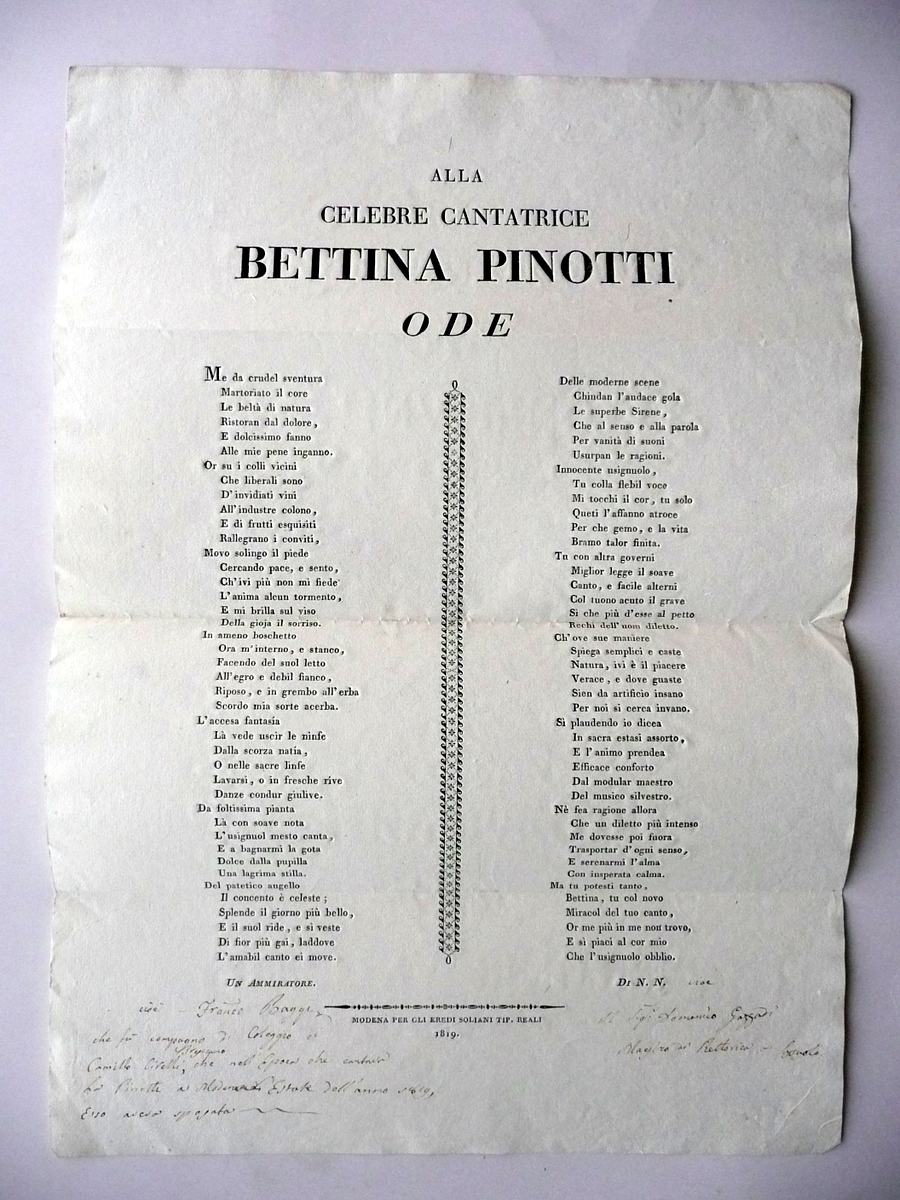 ALLA
CELEBRE CANTATRICE
BETTINA PINOTTI
ODE
Me da crudel sventura
Martoriato il core
Le beltà di natura
Ristoran dal dolore,
E dolcissimo fanno
Alle mie pene inganno.
Or su i colli vicini
Che liberali sono
D'invidiati vini
All'industre colono,
E di frutti esquisiti
Rallegrano i conviti,
Movo solingo il piede
Cercando pace, e sento,
Ch'ivi più non mi fiede
L'anima alcun tormento,
E mi brilla sul viso
Della gioja il sorriso.
In ameno boschetto
Ora m'interno, e stanco,
Facendo del suol letto
All'egro e debil fianco,
Riposo, e in grembo all'erba
Scordo mia sorte acerba.
L'accesa fantasía
Là vede uscir le ninfe
Dalla scorza natía,
O nelle sacre linfe
Lavarsi, o in fresche rive
Danze condur giulive.
Da foltissima pianta
Là con soave nota
L'usignuol mesto canta,
E a bagnarmi la gota
Dolce dalla pupilla
Una lagrima stilla.
Del patetico augello
Il concento è celeste;
Splende il giorno più bello,
E il suol ride, e si veste
Di fior più gai, laddove
L'amabil canto ei move.
UN AMMIRATORE.
Delle moderne scene
Chiudan l'audace gola
Le superbe Sirene,
Che al senso e alla parola
Per vanità di suoni
Usurpan le ragioni.
Innocente usignuolo,
Tu colla flebil voce
Mi tocchi il cor, tu solo
Queti l'affanno atroce
Per che gemo, e la vita
Bramo talor finita.
Tu con altra governi
Miglior legge il soave
Canto, e facile alterni
Col tuono acuto il grave
Sì che più d'esse al petto
Rechi dell'uom diletto.
Ch'ove sue maniere
Spiega semplici e caste
Natura, ivi è il piacere
Verace, e dove guaste
Sien da artificio insano
Per noi si cerca invano.
Sì plaudendo io dicea
In sacra estasi assorto,
E l'animo prendea
Efficace conforto
Dal modular maestro
Del musico silvestro.
Nè fea ragione allora
Che un diletto più intenso
Me dovesse poi fuora
Trasportar d'ogni senso,
E serenarmi l'alma
Con insperata calma.
Ma tu potesti tanto,
Bettina, tu col novo
Miracol del tuo canto,
Or me più in me non trovo,
E sì piaci al cor mio
Che l'usignuolo obblio.
DI N. N. cioè
Domenico
Maestro di Rettorica
MODENA PER GLI EREDI SOLIANI TIP. REALI
1819.
cioè Franc°
che fù compagno di Collegio
Camillo che nell'Epoca che cantava
La Pinotti a Modena Estate dell'anno 1819,
Esso aveva sposata